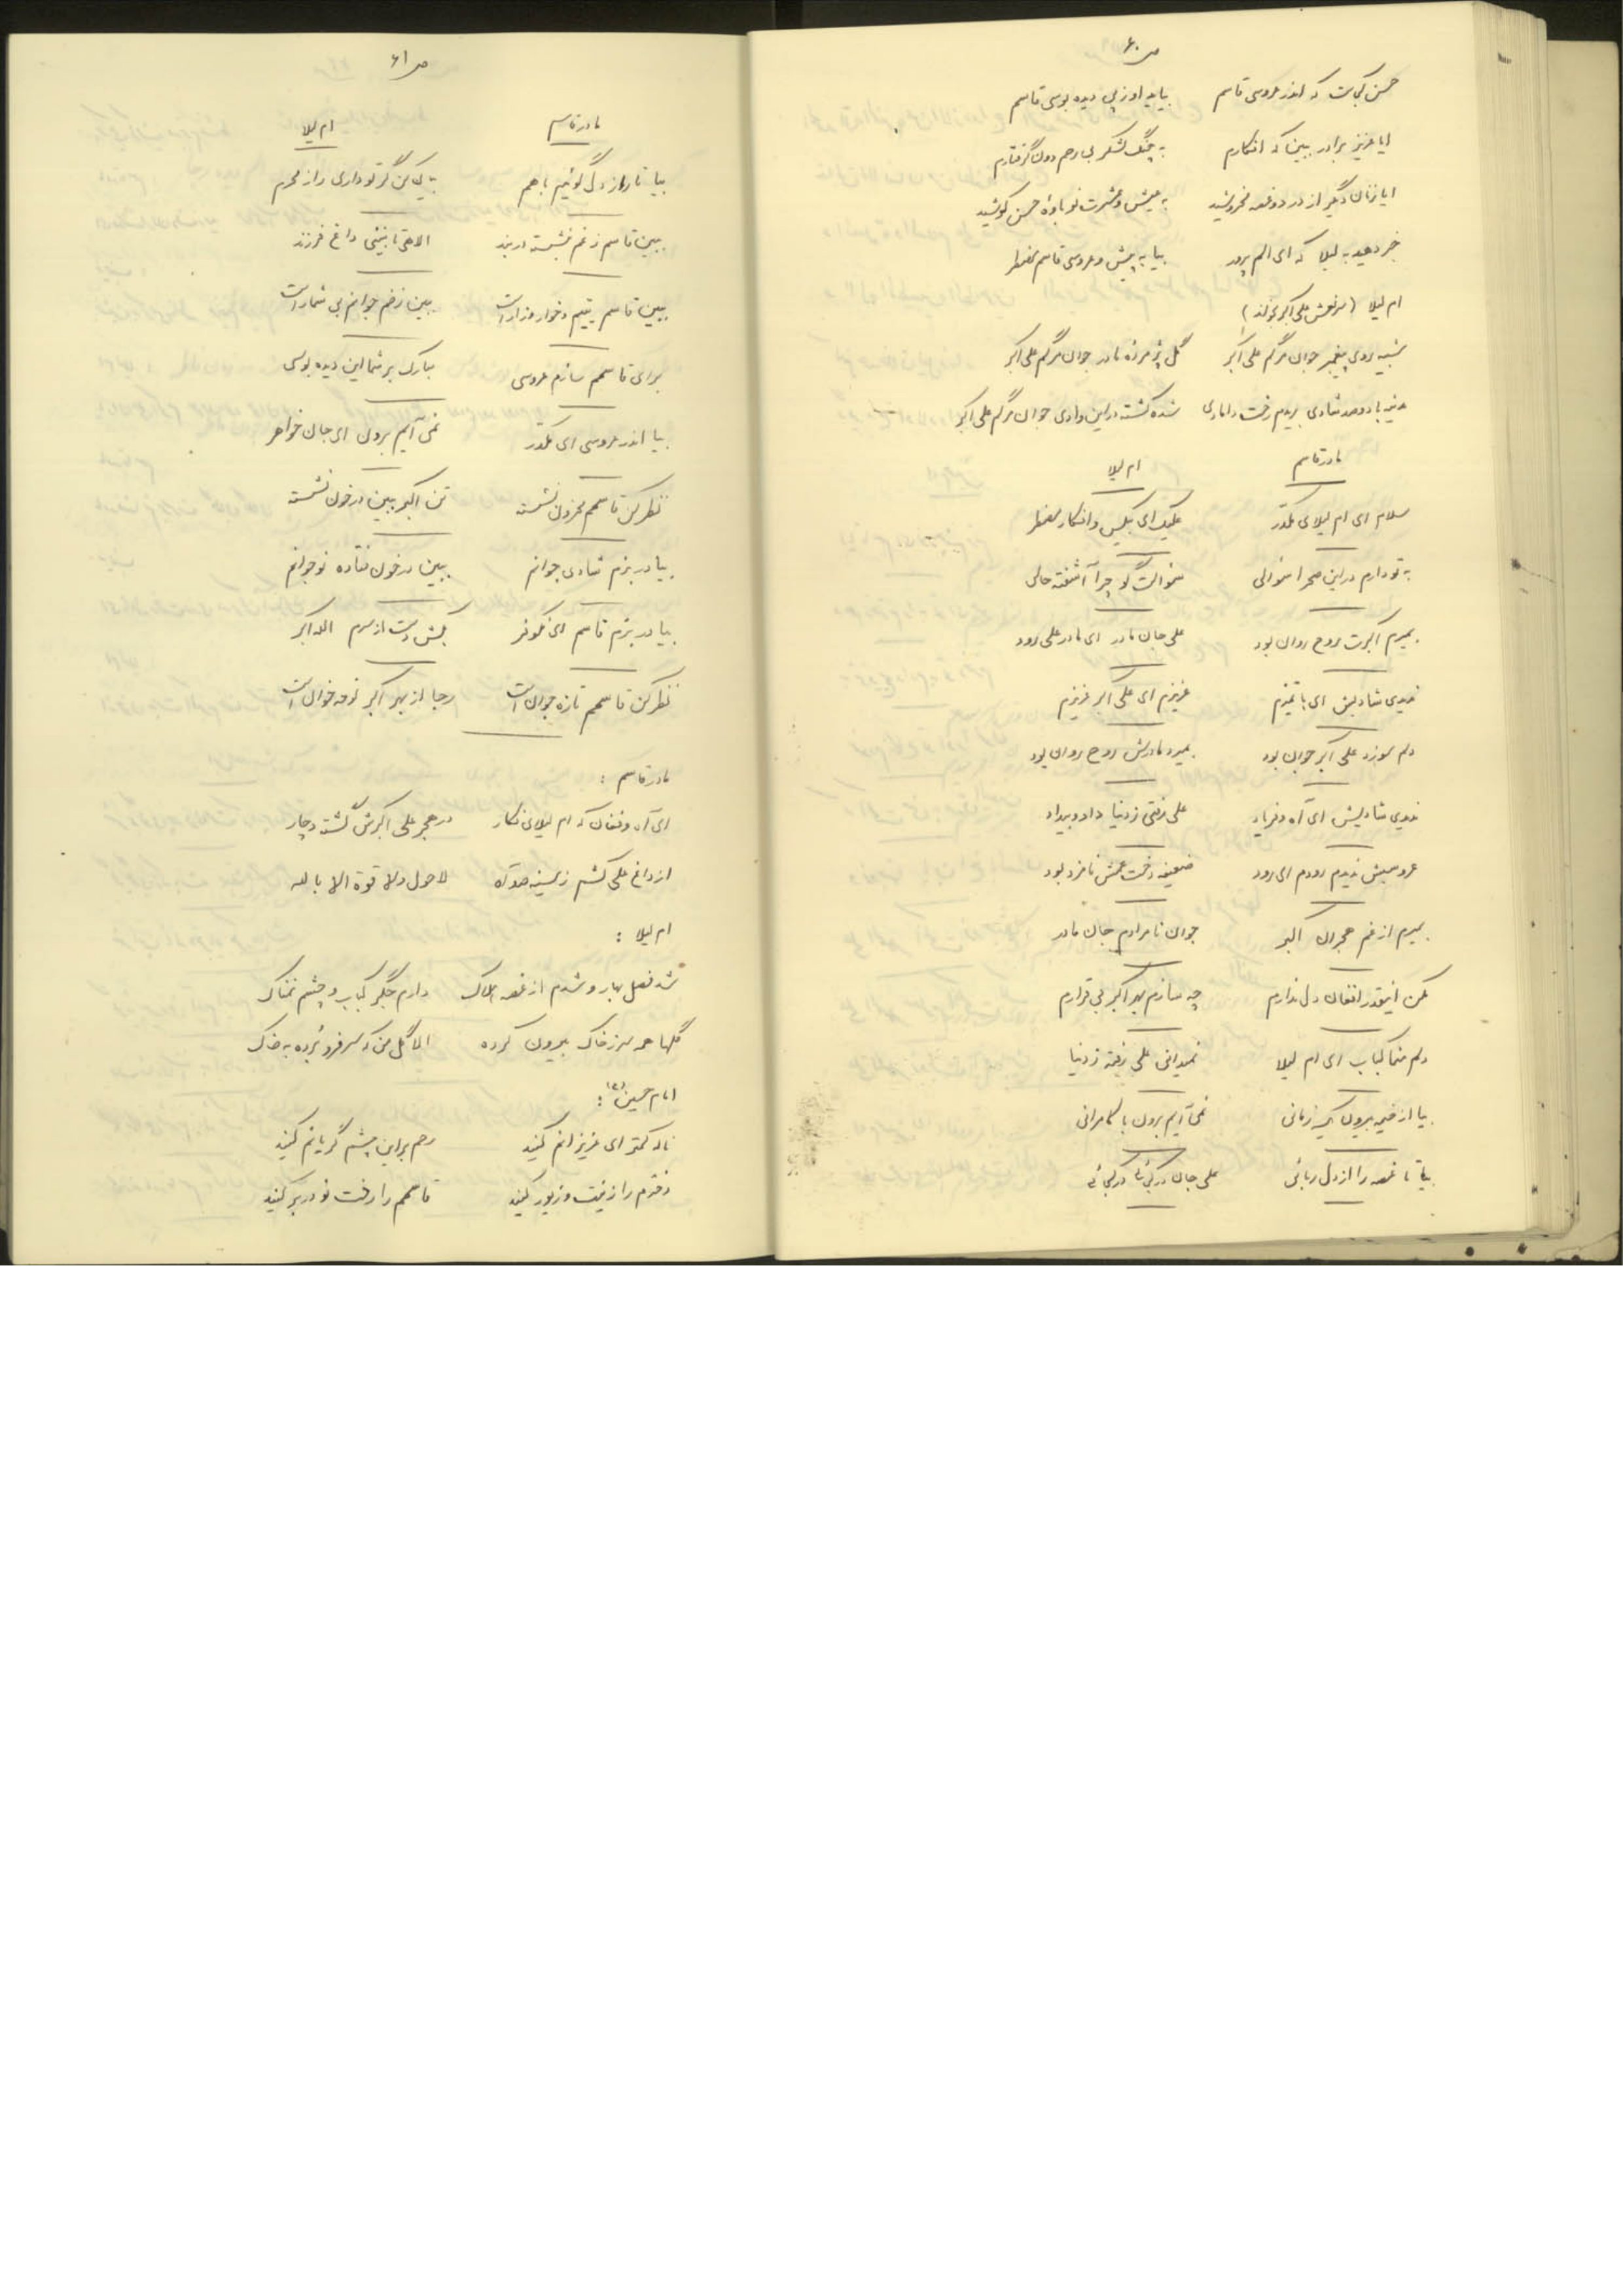 ص ۶۰
حسن کجاست که اندر عروسی قاسم بیاید او ز پی دیده بوسی قاسم
ایا عزیز برادر ببین که افکارم به چنگ لشکر بی رحم دون گرفتارم
ایا زنان دگر از درد و غصه مخروشید به عیش و عشرت نوباوه حسن کوشید
خبر دهید به لیلا که ای الم پرور بیا به پیش و عروسی قاسم مضطر
ام لیلا (سر نعش علی اکبر بخواند)
شبیه روی پیغمبر جوان مرگم علی اکبر گل پژمرده مادر جوان مرگم علی اکبر
مدینه با دو صد شادی بریدم رخت دامادی شده کشته در این وادی جوان مرگم علی اکبر
مادر قاسم ام لیلا
سلام ای ام لیلای مکدر علیک ای بیکس و افکار مضطر
به تو دارم در این صحرا سوالی سوالت گو چرا آشفته حالی
بمیرم اکبرت روح روان بود علی جان مادر ای مادر علی رود
ندیدی شادیش ای با تمیزم عزیزم ای علی اکبر عزیزم
دلم سوزد علی اکبر جوان بود بمیرد مادرش روح روان بود
ندیدی شادیش ای آه و فریاد علی رفتی ز دنیا داد و بیداد
عروسیش ندیدم رودم ای رود ضعیفه دخت عمش نامزد بود
بمیرم از غم هجران اکبر جوان نامرادم جان مادر
مکن اینقدر افغان دل ندارم چه سازم بهر اکبر بی قرارم
دلم منما کباب ای ام لیلا نمیدانی علی رفته ز دنیا
بیا از خیمه بیرون یک زمانی نمی آیم برون با کامرانی
بیا تا غصه را از دل ربائی علی جان در کجائی در کجائی
ص ۶۱
مادر قاسم ام لیلا
بیا تا راز دل گوئیم با هم بیا کن گر تو داری راز محرم
ببین قاسم ز غم بنشسته در بند الاهی تا نبینی داغ فرزند
ببین قاسم یتیم و خوار و زار است ببین زخم جوانم بی شمار است
برای قاسمم سازم عروسی مبارک بر شما این دیده بوسی
بیا اندر عروسی ای مکدر نمی آیم برون ای جان خواهر
نظر کن قاسمم محزون نشسته تن اکبر ببین در خون نشسته
بیا در بزم شادی جوانم ببین در خون فتاده نوجوانم
بیا در بزم قاسم ای نکوفر بکش دست از سرم الله اکبر
نظر کن قاسمم تازه جوان است رجا از بهر اکبر نوحه خوان است
مادر قاسم :
ای آه و فغان که ام لیلای فکار در هجر علی اکبرش گشته دچار
از داغ علی کشم ز سینه صد آه لاحول ولا قوة الا بالله
ام لیلا :
شد فصل بهار و شدم از غصه هلاک دارم جگر کباب و چشم نمناک
گلها همه سر ز خاک بیرون کرده الا گل من که سر فرو برده به خاک
امام حسین (ع) :
ناله کمتر ای عزیزانم کنید رحم بر این چشم گریانم کنید
دخترم را زینت و زیور کنید قاسمم را رخت نو در بر کنید